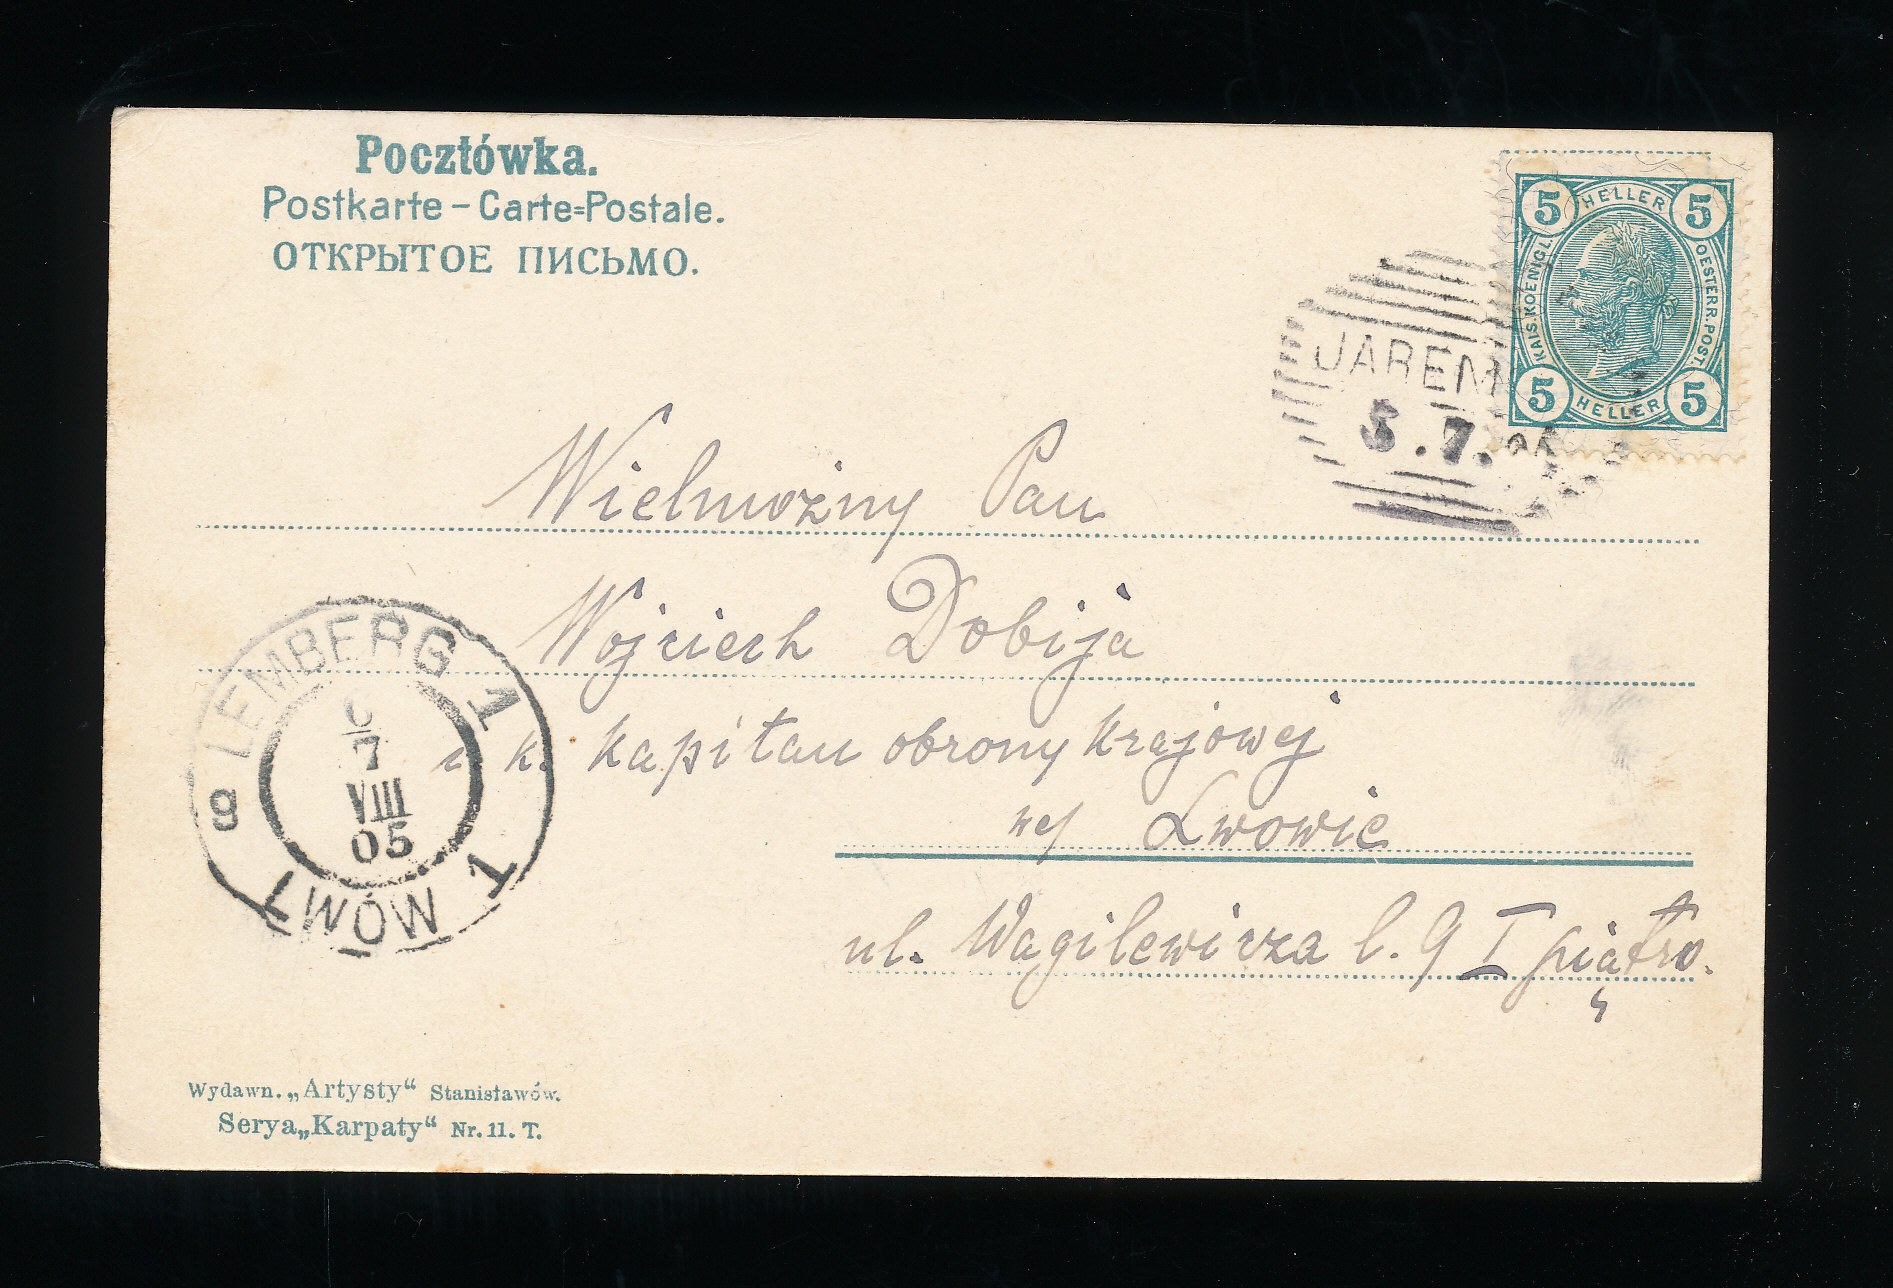 Pocztówka.
Postkarte – Carte=Postale.
ОТКРЫТОЕ ПИСЬМО.
5 HELLER 5
KAIS. KOENIGL. OESTERR. POST.
5 HELLER 5
JAREM
5.7.05
Wielmożny Pan
Wojciech Dobija
k. kapitan obrony krajowej
we Lwowie
ul. Wagilewicza l. 9 I piątro.
LEMBERG 1
7
VIII
05
9
LWÓW 1
Wydawn. „Artysty“ Stanisławów.
Serya „Karpaty“ Nr. 11. T.